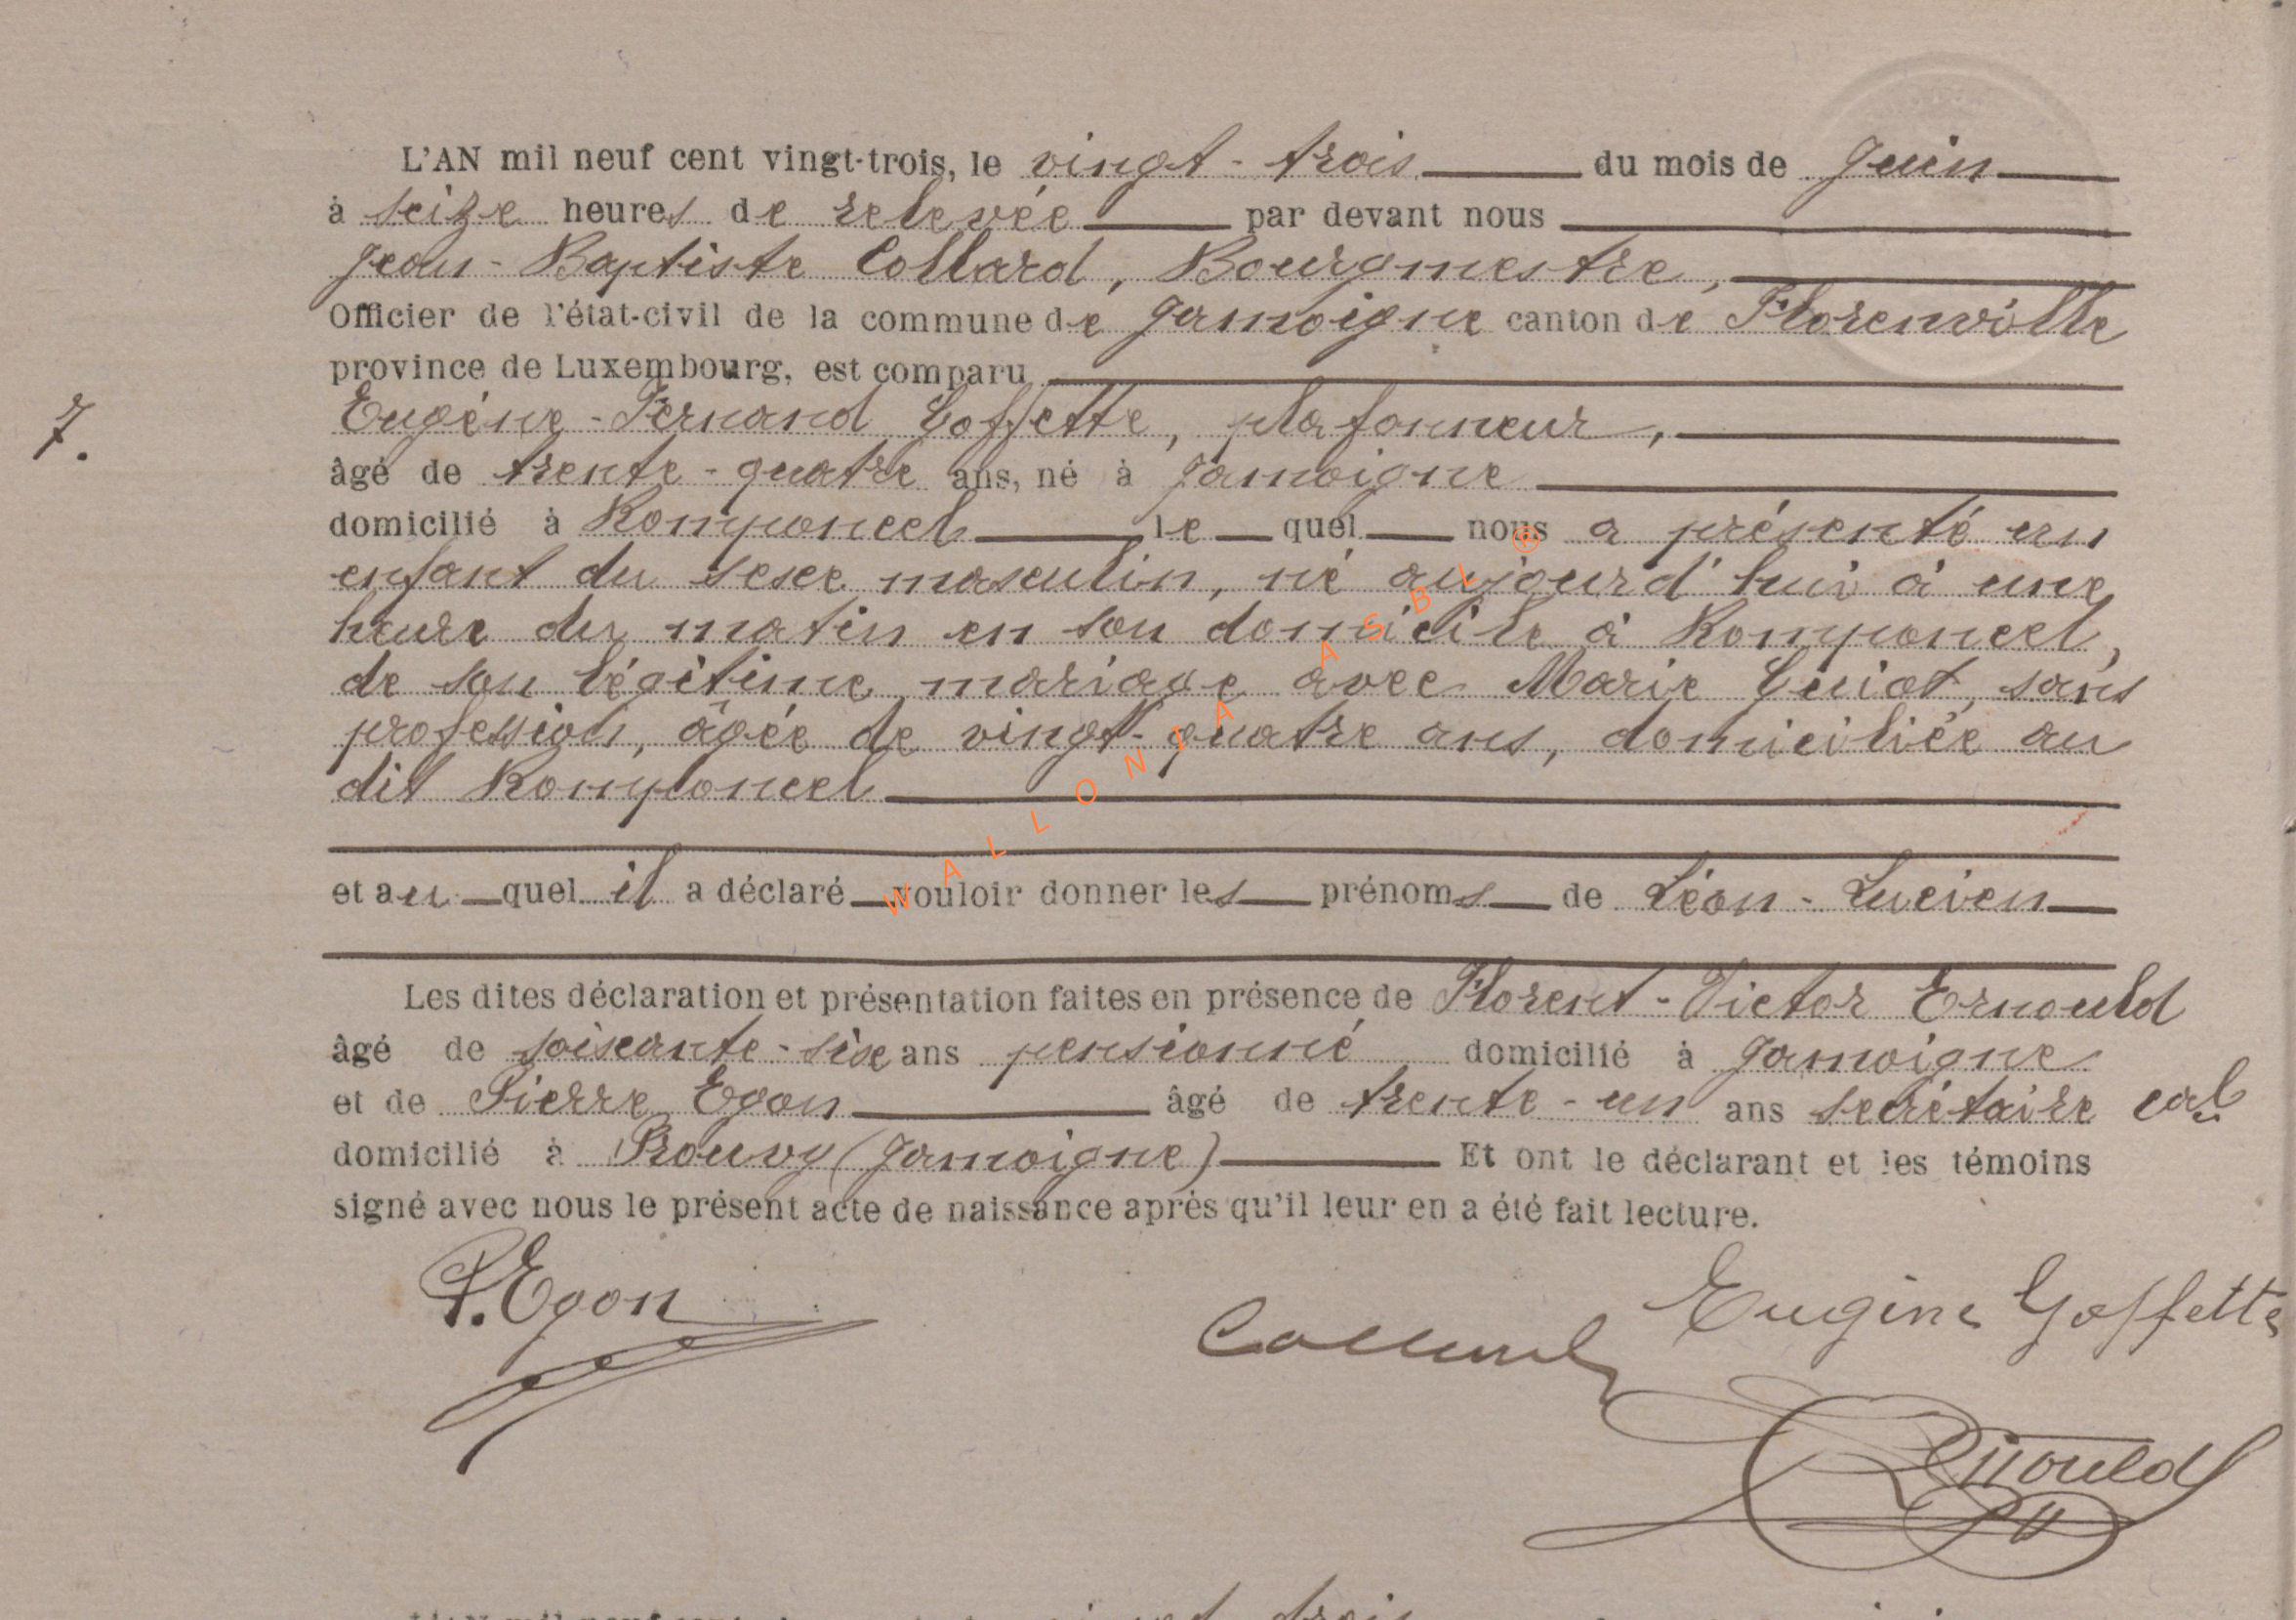 L'AN mil neuf cent vingt-trois, le vingt-trois du mois de Juin
à seize heures de relevée par devant nous
Jean-Baptiste Collard, Bourgmestre,
Officier de l'état-civil de la commune de Jamoigne canton de Florenville
province de Luxembourg, est comparu
7.
Eugène-Fernand Goffette, plafonneur,
âgé de trente-quatre ans, né à Jamoigne
domicilié à Romponcel le quel nous a présenté un
enfant du sexe masculin, né aujourd'hui à une
heure du matin en son domicile à Romponcel,
de son légitime mariage avec Marie Guiot, sans
profession, âgée de vingt-quatre ans, domiciliée au
dit Romponcel
WALLONIA ASBL ®
et au quel il a déclaré vouloir donner les prénoms de Léon-Lucien
Les dites déclaration et présentation faites en présence de Florent-Victor Ernould
âgé de soixante-six ans pensionné domicilié à Jamoigne
et de Pierre Egon âgé de trente-un ans secrétaire cal
domicilié à Prouvy (Jamoigne) Et ont le déclarant et les témoins
signé avec nous le présent acte de naissance après qu'il leur en a été fait lecture.
P. Egon
Collard
Eugène Goffette
Ernould